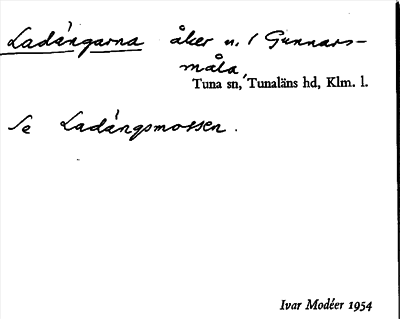 Ladängarna åker n. 1 Gunnars-
måla,
Tuna sn, Tunaläns hd, Klm. l.
Se Ladängsmossen.
Ivar Modéer 1954